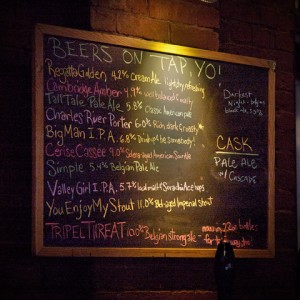 BEERS ON TAP, YO!
Regatta Golden 4.2% Cream Ale light, dry, refreshing
Cambridge Amber 4.9% well balanced & malty
Tall Tale Pale Ale 5.8% Classic American pale
Charles River Porter 6.0% Rich, dark & roasty
Big Man I.P.A. 6.8% Drink up! be somebody!
Cerise Cassée 9.0% Solera-aged American Sour Ale
Simple 5.4% Belgian Pale Ale
Valley Girl I.P.A. 5.7%
You Enjoy My Stout 11.0% Bbl-aged Imperial stout
TRIPEL THREAT 10.0% Belgian strong ale
Darkest
Night
CASK
PALE ALE
w/ CASCADE
now in 22oz bottles
for